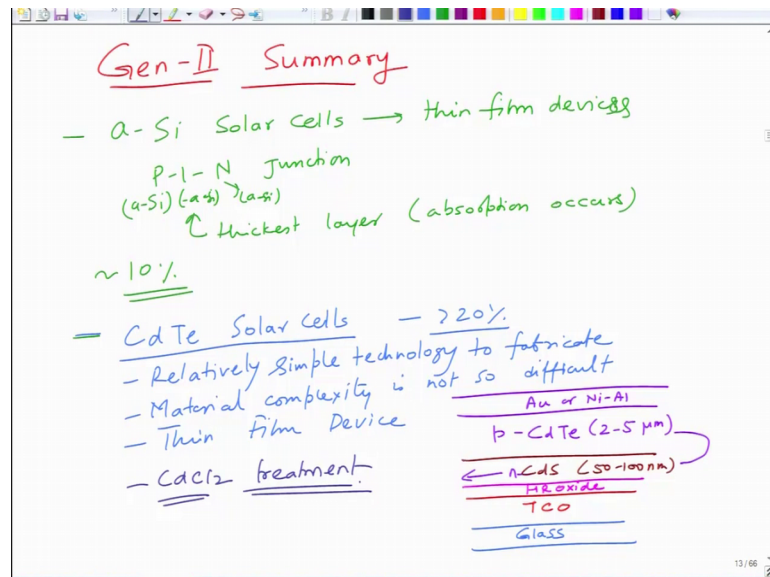 Gen-II Summary
- a-Si Solar Cells → thin film devices
P-I-N Junction
(a-Si) (-a-si) (a-si)
thickest layer (absorption occurs)
~10%
- CdTe Solar Cells - >20%
- Relatively simple technology to fabricate
- Material complexity is not so difficult
- Thin Film Device
- CdCl2 treatment
Au or Ni-Al
p-CdTe (2-5 μm)
n-CdS (50-100nm)
HR oxide
TCO
Glass
13/66